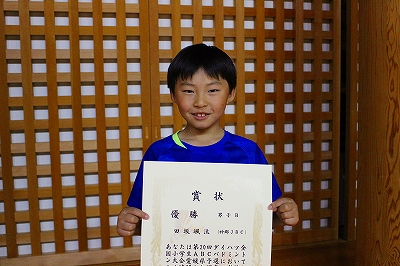 賞状
優勝 男子B
田坂颯汰 (砂都JBC)
あなたは第20回ダイハツ全
国小学生ABCバドミント
ン大会愛媛県予選において